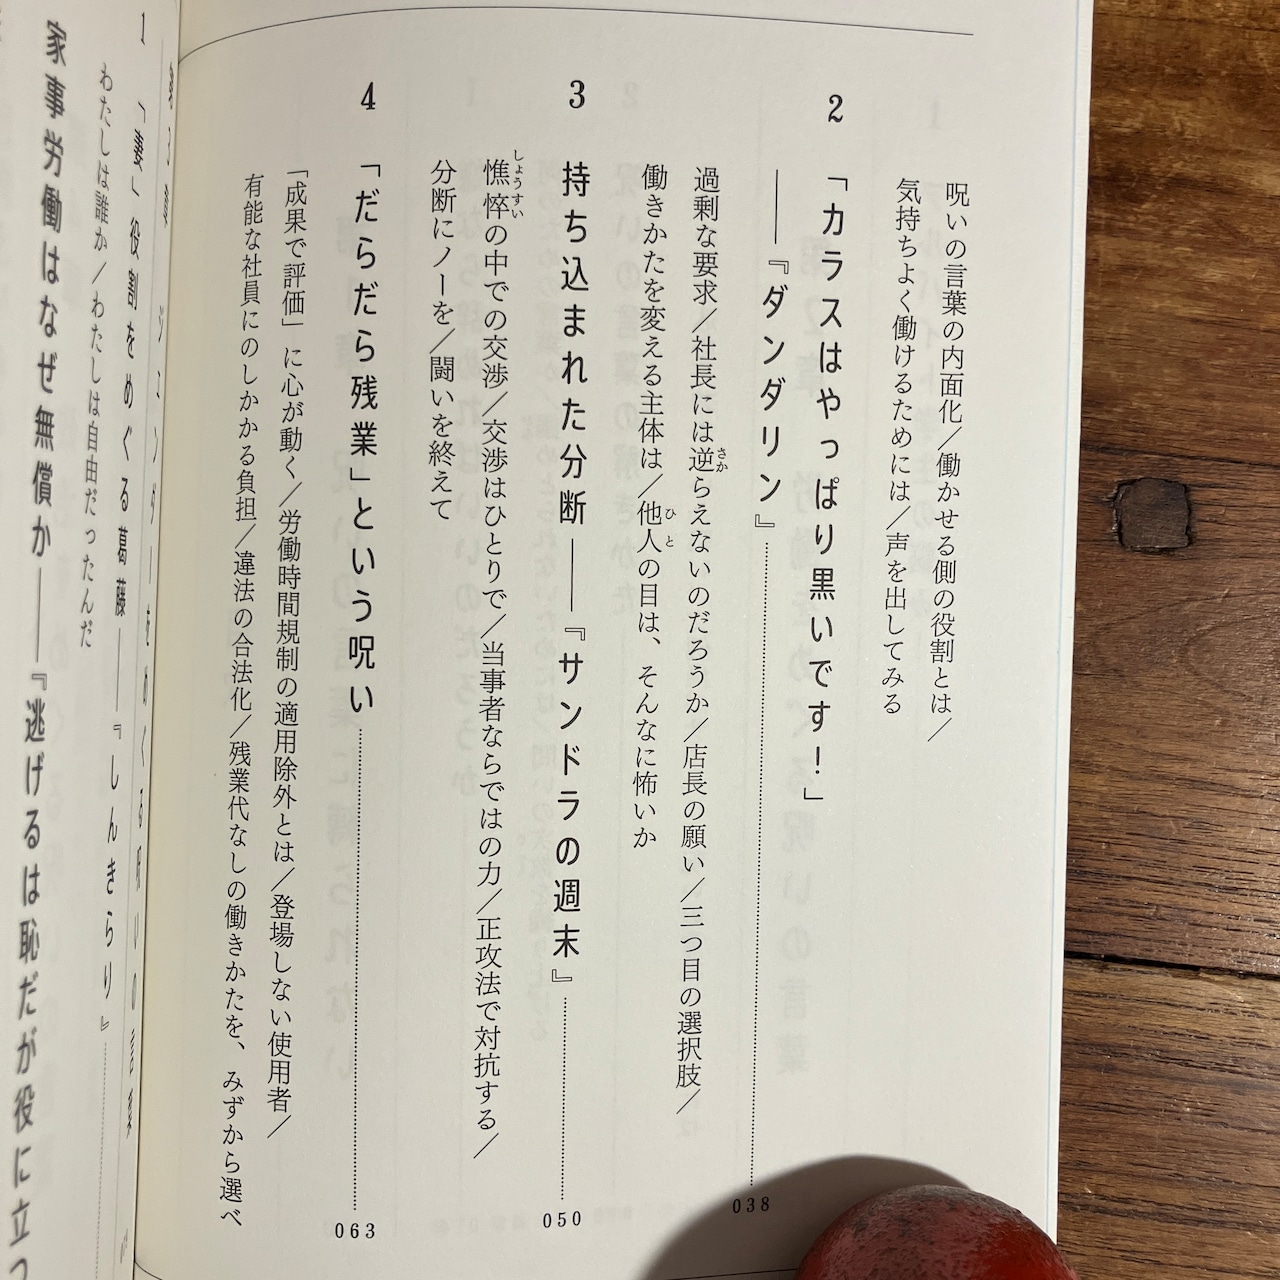 呪いの言葉の内面化／働かせる側の役割とは／
気持ちよく働けるためには／声を出してみる
2 「カラスはやっぱり黒いです！」
──『ダンダリン』 038
過剰な要求／社長には逆らえないのだろうか／店長の願い／三つ目の選択肢／
さか
働きかたを変える主体は／他人の目は、そんなに怖いか
ひと
3 持ち込まれた分断──『サンドラの週末』 050
憔悴の中での交渉／交渉はひとりで／当事者ならではの力／正攻法で対抗する／
しょうすい
分断にノーを／闘いを終えて
4 「だらだら残業」という呪い 063
「成果で評価」に心が動く／労働時間規制の適用除外とは／登場しない使用者／
有能な社員にのしかかる負担／違法の合法化／残業代なしの働きかたを、みずから選べ
第3章 ジェンダーをめぐる呪いの言葉
1 「妻」役割をめぐる葛藤──『しんきらり』
わたしは誰か／わたしは自由だったんだ
家事労働はなぜ無償か──『逃げるは恥だが役に立つ